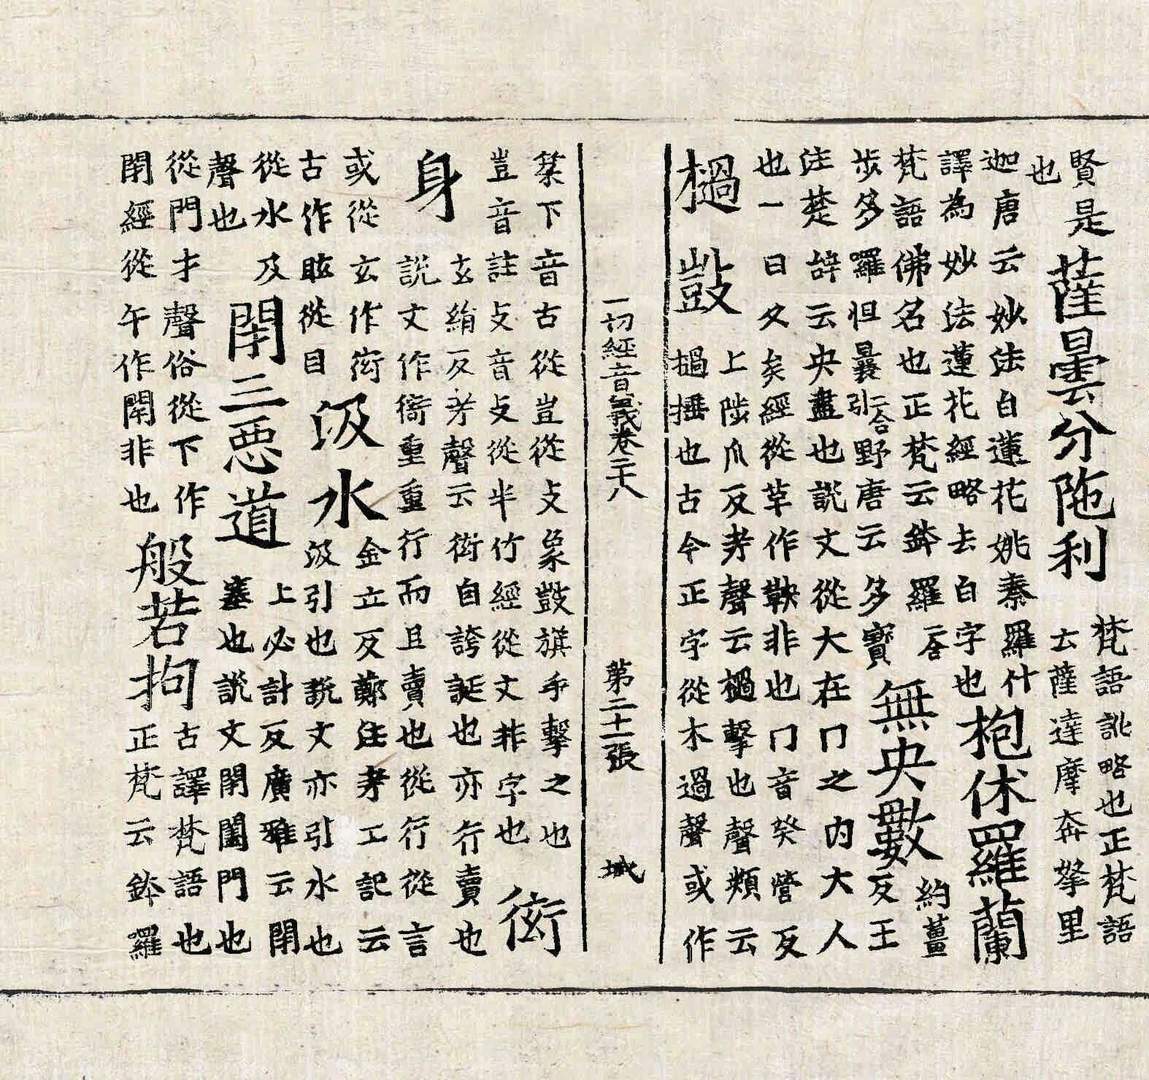 賢是
也
薩曇分陁利
梵語訛略也正梵語
云薩達摩奔拏里
迦唐云妙法白蓮花姚秦羅什
譯為妙法蓮花經略去白字也
抱休羅蘭
梵語佛名也正梵云鉢羅二合
步多羅怛曩二合引野唐云多寶
無央數
約薑
反王
注楚辞云央盡也說文從大在冂之内大人
也一曰夂矣經從革作鞅非也冂音癸營反
檛鼓
上陟爪反考聲云檛擊也聲類云
檛捶也古今正字從木過聲或作
一切經音義卷二十八 第二十一張 城
築下音古從豈從攴象鼓旗手擊之也
豈音註攴音攴從半竹經從文非字也
衒
身
玄絹反考聲云衒自誇誕也亦行賣也
說文作衙重重行而且賣也從行從言
或從玄作衒
古作眩從目
汲水
金立反鄭注考工記云
汲引也說文亦引水也
從水及
聲也
閇三惡道
上必計反廣雅云閇
塞也說文閇闔門也
從門才聲俗從下作
閇經從午作閈非也
般若拘
古譯梵語也
正梵云鉢羅